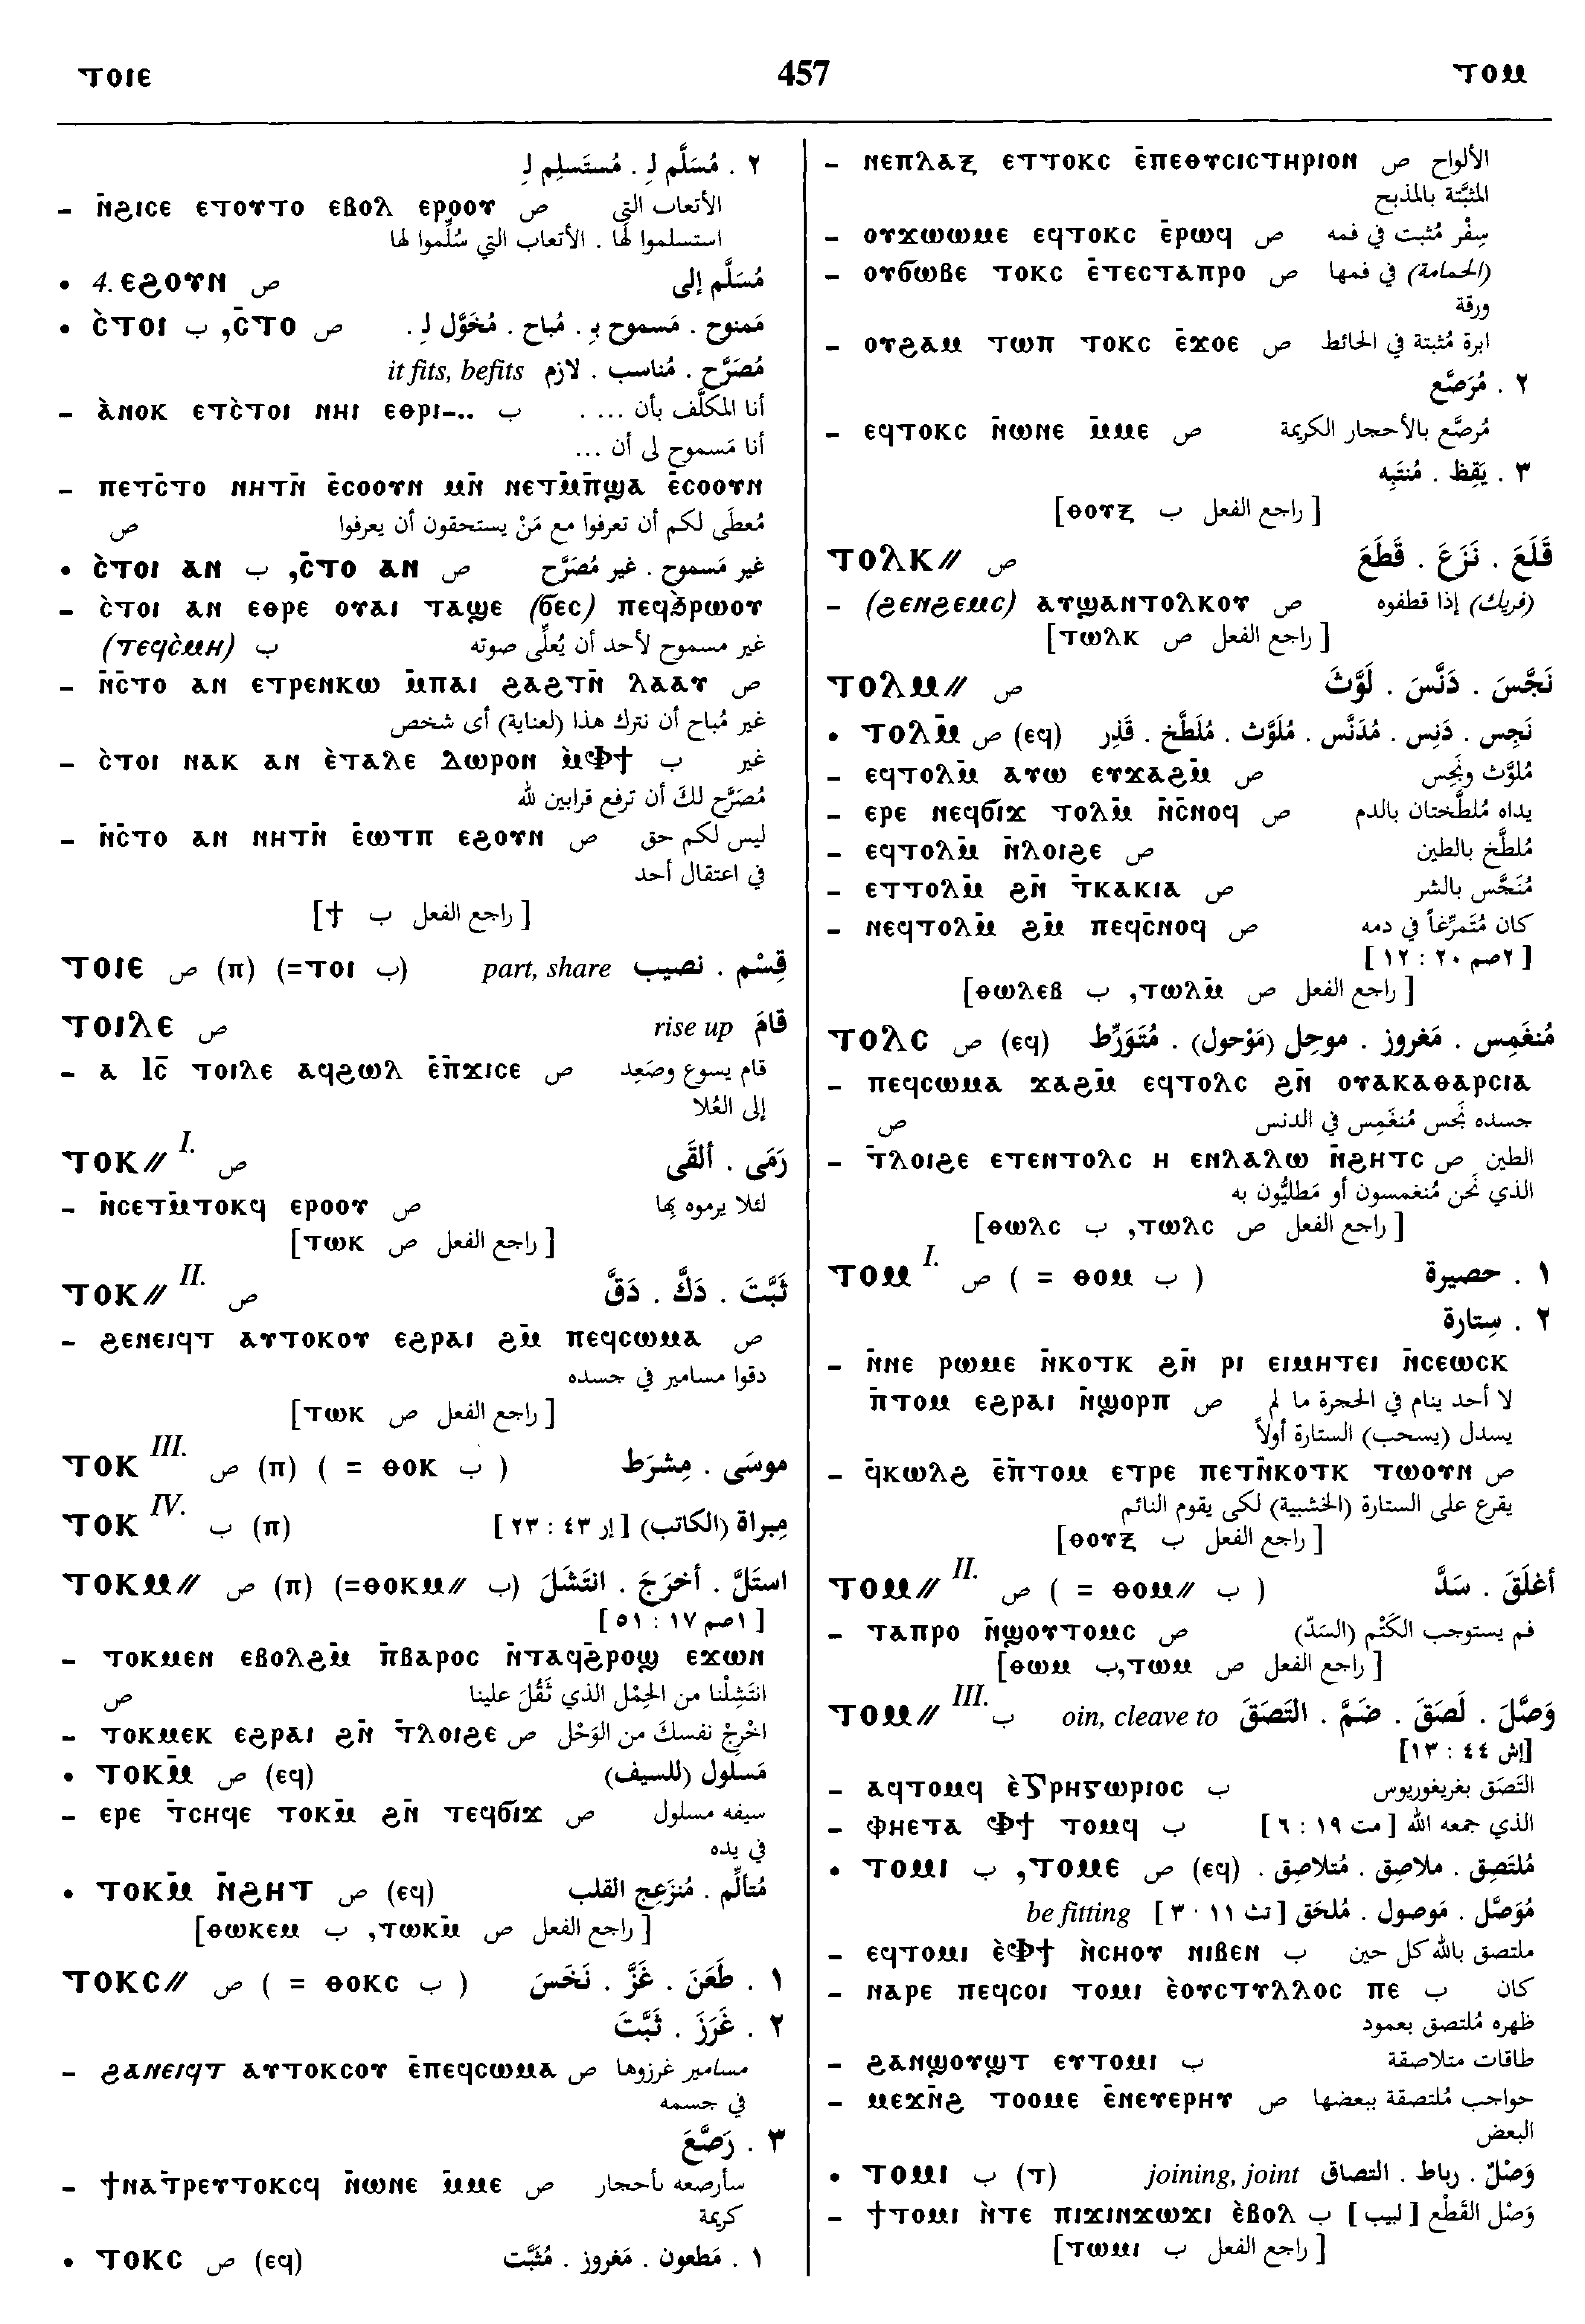 ⲧⲟⲓⲉ 457 ⲧⲟⲙ
٢ . مُسَلَّم لِـ . مُستَسلِم لِـ
– ⲛ̄ϩⲓⲥⲉ ⲉⲧⲟⲩⲧⲟ ⲉⲃⲟⲗ ⲉⲣⲟⲟⲩ ص الأتعاب التي
استسلموا لها . الأتعاب التي سُلِّموا لها
• 4. ⲉϩⲟⲩⲛ ص مُسَلَّم إلى
• ⲥ̀ⲧⲟⲓ ب ,ⲥ̄ⲧⲟ ص مَمنوح . مَسموح بِـ . مُباح . مُخَوَّل لِـ .
مُصَرَّح . مُناسب . لازم it fits, befits
– ⲁ̀ⲛⲟⲕ ⲉⲧⲥ̀ⲧⲟⲓ ⲛⲏⲓ ⲉⲑⲣⲓ-.. ب أنا المكلَّف بأن ... .
أنا مَسموح لى أن ...
– ⲡⲉⲧⲥ̄ⲧⲟ ⲛⲏⲧⲛ̄ ⲉ̄ⲥⲟⲟⲩⲛ ⲙⲛ̄ ⲛⲉⲧⲙ̄ⲡ̄ϣⲁ ⲉ̄ⲥⲟⲟⲩⲛ
مُعطَى لكم أن تعرفوا مع مَنْ يستحقون أن يعرفوا ص
• ⲥ̀ⲧⲟⲓ ⲁⲛ ب ,ⲥ̄ⲧⲟ ⲁⲛ ص غير مَسموح . غير مُصَرَّح
– ⲥ̀ⲧⲟⲓ ⲁⲛ ⲉⲑⲣⲉ ⲟⲩⲁⲓ ⲧⲁϣⲉ (ϭⲉⲥ) ⲡⲉϥϧ̀ⲣⲱⲟⲩ
(ⲧⲉϥⲥ̀ⲙⲏ) ب غير مسموح لأحد أن يُعلِّى صوته
– ⲛ̄ⲥ̄ⲧⲟ ⲁⲛ ⲉⲧⲣⲉⲛⲕⲱ ⲙ̄ⲡⲁⲓ ϩⲁϩⲧⲛ̄ ⲗⲁⲁⲩ ص
غير مُباح أن نترك هذا (لعناية) أى شخص
– ⲥ̀ⲧⲟⲓ ⲛⲁⲕ ⲁⲛ ⲉ̀ⲧⲁⲗⲉ ⲇⲱⲣⲟⲛ ⲙ̀ⲫϯ ب غير
مُصَرَّح لكَ أن ترفع قرابين لله
– ⲛ̄ⲥ̄ⲧⲟ ⲁⲛ ⲛⲏⲧⲛ̄ ⲉ̄ⲱⲧⲡ ⲉϩⲟⲩⲛ ص ليس لكم حق
في اعتقال أحد
[ راجع الفعل ب ϯ]
ⲧⲟⲓⲉ ص (ⲡ) (=ⲧⲟⲓ ب) part, share قِسْم . نصيب
ⲧⲟⲓⲗⲉ ص rise up قامَ
– ⲁ ⲓⲥ̄ ⲧⲟⲓⲗⲉ ⲁϥϩⲱⲗ ⲉ̄ⲡ̄ϫⲓⲥⲉ ص قام يسوع وصَعِد
إلى العُلا
ⲧⲟⲕ// I. ص رَمَى . ألقَى
– ⲛ̄ⲥⲉⲧⲙ̄ⲧⲟⲕϥ ⲉⲣⲟⲟⲩ ص لئلا يرموه بها
[ راجع الفعل ص ⲧⲱⲕ]
ⲧⲟⲕ// II. ص ثَبَّتَ . دَكَّ . دَقَّ
– ϩⲉⲛⲉⲓϥⲧ ⲁⲩⲧⲟⲕⲟⲩ ⲉϩⲣⲁⲓ ϩⲙ̄ ⲡⲉϥⲥⲱⲙⲁ ص
دقوا مسامير في جسده
[ راجع الفعل ص ⲧⲱⲕ]
ⲧⲟⲕ III. ص (ⲡ) ( = ⲑⲟⲕ ب ) موسَى . مِشرَط
ⲧⲟⲕ IV. ب (ⲡ) مِبراة (الكاتب) [ إر ٤٣ : ٢٣ ]
ⲧⲟⲕⲙ// ص (ⲡ) (=ⲑⲟⲕⲙ// ب) استَلَّ . أخرَجَ . انتَشَلَ
[ ١صم ١٧ : ٥١ ]
– ⲧⲟⲕⲙⲉⲛ ⲉⲃⲟⲗϩⲙ̄ ⲡ̄ⲃⲁⲣⲟⲥ ⲛ̄ⲧⲁϥϩ̄ⲣⲟϣ ⲉϫⲱⲛ
انتَشِلْنا من الحِمْل الذي ثَقُلَ علينا ص
– ⲧⲟⲕⲙⲉⲕ ⲉϩⲣⲁⲓ ϩⲛ̄ ⲧ̄ⲗⲟⲓϩⲉ ص اخْرِجْ نفسكَ من الوَحْل
• ⲧⲟⲕⲙ̄ ص (ⲉϥ) مَسلول (للسيف)
– ⲉⲣⲉ ⲧ̄ⲥⲏϥⲉ ⲧⲟⲕⲙ̄ ϩⲛ̄ ⲧⲉϥϭⲓϫ ص سيفه مسلول
في يده
• ⲧⲟⲕⲙ̄ ⲛ̄ϩⲏⲧ ص (ⲉϥ) مُتألِّم . مُنزَعِج القلب
[ راجع الفعل ص ⲧⲱⲕⲙ̄, ب ⲑⲱⲕⲉⲙ]
ⲧⲟⲕⲥ// ص ( = ⲑⲟⲕⲥ ب ) ١ . طَعَنَ . غَزَّ . نَخَسَ
٢ . غَرَزَ . ثَبَّتَ
– ϩⲁⲛⲉⲓϥⲧ ⲁⲩⲧⲟⲕⲥⲟⲩ ⲉ̄ⲡⲉϥⲥⲱⲙⲁ ص مسامير غرزوها
في جسمه
٣ . رَصَّعَ
– ϯⲛⲁⲧ̄ⲣⲉⲩⲧⲟⲕⲥϥ ⲛ̄ⲱⲛⲉ ⲙ̄ⲙⲉ ص سأرصعه بأحجار
كريمة
• ⲧⲟⲕⲥ ص (ⲉϥ) ١ . مَطعون . مَغروز . مُثَبَّت
– ⲛⲉⲡⲗⲁⲝ ⲉⲧⲧⲟⲕⲥ ⲉ̄ⲡⲉⲑⲩⲥⲓⲥⲧⲏⲣⲓⲟⲛ ص الألواح
المثبَّتة بالمذبح
– ⲟⲩϫⲱⲱⲙⲉ ⲉϥⲧⲟⲕⲥ ⲉ̄ⲣⲱϥ ص سِفْر مُثبت في فمه
– ⲟⲩϭⲱⲃⲉ ⲧⲟⲕⲥ ⲉ̄ⲧⲉⲥⲧⲁⲡⲣⲟ ص (الحمامة) في فمها
ورقة
– ⲟⲩϩⲁⲙ ⲧⲱⲡ ⲧⲟⲕⲥ ⲉ̄ϫⲟⲉ ص ابرة مُثبتة في الحائط
٢ . مُرَصَّع
– ⲉϥⲧⲟⲕⲥ ⲛ̄ⲱⲛⲉ ⲙ̄ⲙⲉ ص مُرصَّع بالأحجار الكريمة
٣ . يَقِظ . مُنتَبِه
[ راجع الفعل ب ⲑⲟⲩⲝ]
ⲧⲟⲗⲕ// ص قَلَعَ . نَزَعَ . قَطَعَ
– (ϩⲉⲛϩⲉⲙⲥ) ⲁⲩϣⲁⲛⲧⲟⲗⲕⲟⲩ ص (فريك) إذا قطفوه
[ راجع الفعل ص ⲧⲱⲗⲕ]
ⲧⲟⲗⲙ// ص نَجَّسَ . دَنَّسَ . لَوَّثَ
• ⲧⲟⲗⲙ̄ ص (ⲉϥ) نَجِس . دَنِس . مُدَنَّس . مُلَوَّث . مُلَطَّخ . قَذِر
– ⲉϥⲧⲟⲗⲙ̄ ⲁⲩⲱ ⲉⲩϫⲁϩⲙ̄ ص مُلوَّث ونَجِس
– ⲉⲣⲉ ⲛⲉϥϭⲓϫ ⲧⲟⲗⲙ̄ ⲛ̄ⲥ̄ⲛⲟϥ ص يداه مُلطَّختان بالدم
– ⲉϥⲧⲟⲗⲙ̄ ⲛ̄ⲗⲟⲓϩⲉ ص مُلطَّخ بالطين
– ⲉⲧⲧⲟⲗⲙ̄ ϩⲛ̄ ⲧ̄ⲕⲁⲕⲓⲁ ص مُنَجَّس بالشر
– ⲛⲉϥⲧⲟⲗⲙ̄ ϩⲙ̄ ⲡⲉϥⲥ̄ⲛⲟϥ ص كان مُتَمرِّغاً في دمه
[ ٢صم ٢٠ : ١٢ ]
[ راجع الفعل ص ⲧⲱⲗⲙ̄, ب ⲑⲱⲗⲉⲃ]
ⲧⲟⲗⲥ ص (ⲉϥ) مُنغَمِس . مَغروز . موحِل (مَوْحول) . مُتَوَرِّط
– ⲡⲉϥⲥⲱⲙⲁ ϫⲁϩⲙ̄ ⲉϥⲧⲟⲗⲥ ϩⲛ̄ ⲟⲩⲁⲕⲁⲑⲁⲣⲥⲓⲁ
جسده نَجس مُنغَمِس في الدنس ص
– ⲧ̄ⲗⲟⲓϩⲉ ⲉⲧⲉⲛⲧⲟⲗⲥ ⲏ ⲉⲛⲗⲁⲗⲱ ⲛ̄ϩⲏⲧⲥ ص الطين
الذي نَحن مُنغمسون أو مَطليُّون به
[ راجع الفعل ص ⲧⲱⲗⲥ, ب ⲑⲱⲗⲥ]
ⲧⲟⲙ I. ص ( = ⲑⲟⲙ ب ) ١ . حصيرة
٢ . سِتارة
– ⲛ̄ⲛⲉ ⲣⲱⲙⲉ ⲛ̄ⲕⲟⲧⲕ ϩⲛ̄ ⲣⲓ ⲉⲓⲙⲏⲧⲉⲓ ⲛ̄ⲥⲉⲱⲥⲕ
ⲡ̄ⲧⲟⲙ ⲉϩⲣⲁⲓ ⲛ̄ϣⲟⲣⲡ ص لا أحد ينام في الحجرة ما لم
يسدل (يسحب) الستارة أولاً
– ϥ̄ⲕⲱⲗϩ ⲉ̄ⲡ̄ⲧⲟⲙ ⲉⲧⲣⲉ ⲡⲉⲧⲛ̄ⲕⲟⲧⲕ ⲧⲱⲟⲩⲛ ص
يقرع على الستارة (الخشبية) لكى يقوم النائم
[ راجع الفعل ب ⲑⲟⲩⲝ]
ⲧⲟⲙ// II. ص ( = ⲑⲟⲙ// ب ) أغلَقَ . سَدَّ
– ⲧⲁⲡⲣⲟ ⲛ̄ϣⲟⲩⲧⲟⲙⲥ ص فم يستوجب الكَتْم (السَدّ)
[ راجع الفعل ص ⲧⲱⲙ,ب ⲑⲱⲙ]
ⲧⲟⲙ// III. ب oin, cleave to وَصَّلَ . لَصَقَ . ضَمَّ . التَصَقَ
[إش ٤٤ : ١٣]
– ⲁϥⲧⲟⲙϥ ⲉ̀Ⲅⲣⲏⲅⲱⲣⲓⲟⲥ ب التَصَق بغريغوريوس
– ⲫⲏⲉⲧⲁ ⲫϯ ⲧⲟⲙϥ ب الذي جمعه الله [ مت ١٩ : ٦ ]
• ⲧⲟⲙⲓ ب ,ⲧⲟⲙⲉ ص (ⲉϥ) مُلتَصِق . ملاصِق . مُتلاصِق .
مُوَصَّل . مَوصول . مُلحَق [ تث ١١ · ٣ ] be fitting
– ⲉϥⲧⲟⲙⲓ ⲉ̀ⲫϯ ⲛ̀ⲥⲏⲟⲩ ⲛⲓⲃⲉⲛ ب ملتصق بالله كل حين
– ⲛⲁⲣⲉ ⲡⲉϥⲥⲟⲓ ⲧⲟⲙⲓ ⲉ̀ⲟⲩⲥⲧⲩⲗⲗⲟⲥ ⲡⲉ ب كان
ظهره مُلتصق بعمود
– ϩⲁⲛϣⲟⲩϣⲧ ⲉⲩⲧⲟⲙⲓ ب طاقات متلاصقة
– ⲙⲉϫⲛ̄ϩ ⲧⲟⲟⲙⲉ ⲉ̄ⲛⲉⲩⲉⲣⲏⲩ ص حواجب مُلتصقة ببعضها
البعض
• ⲧⲟⲙⲓ ب (ⲧ) joining, joint وَصْلٌ . رباط . التصاق
– ϯⲧⲟⲙⲓ ⲛ̀ⲧⲉ ⲡⲓϫⲓⲛϫⲱϫⲓ ⲉ̀ⲃⲟⲗ ب وَصْل القَطْع [ لبيب ]
[ راجع الفعل ب ⲧⲱⲙⲓ]